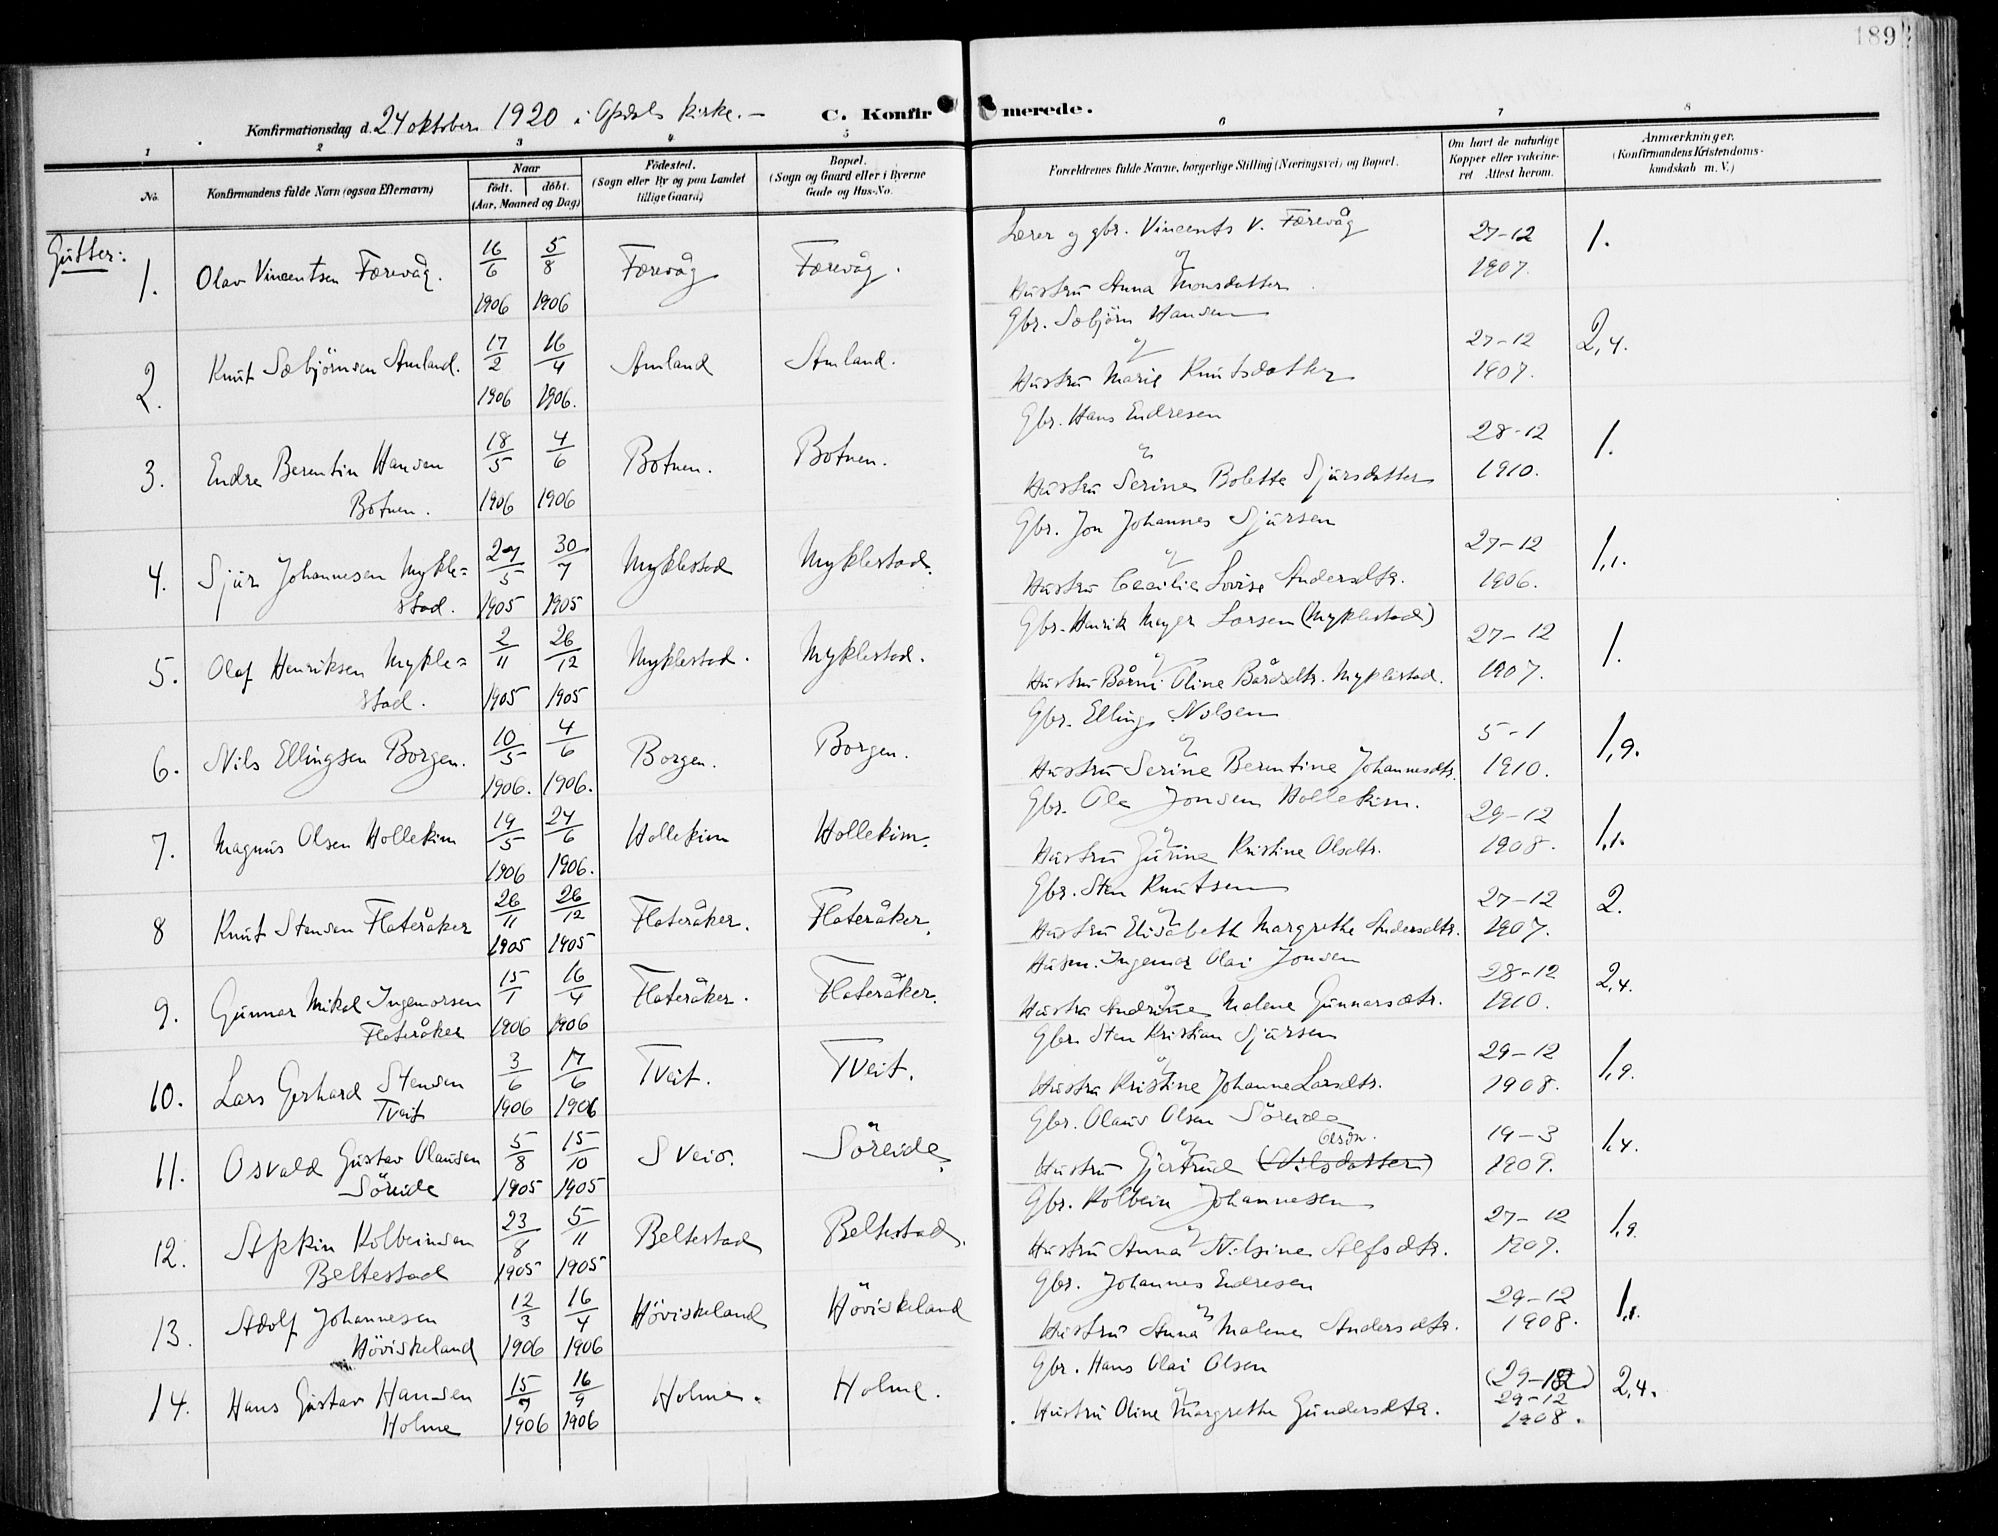 189
Konfirmationsdag d. 24 oktober 1920 i Opdals kirke. –
C. Konfirmerede.
1 2 3 4 5 6 7 8
No.
Konfirmandens fulde Navn (ogsaa Efternavn)
Naar
födt. döbt.
(Aar, Maaned og Dag)
Födested.
(Sogn eller By og paa Landet
tillige Gaard)
Bopæl.
(Sogn og Gaard eller i Byerne
Gade og Hus-No.
Forældrenes fulde Navne, borgerlige Stilling (Næringsvei) og Bopæl.
Om havt de naturlige
Kopper eller vakcine-
ret Attest herom.
Anmærkninger.
(Konfirmandens Kristendoms-
kundskab m. V.)
Gutter:
1. Olav Vincentsen Færevåg. 16/6 1906 5/8 1906 Færevåg Færevåg.
Lærer og gbr. Vincents V. Færevåg
og
Hustru Anna Monsdatter
27-12 1907. 1.
2. Knut Sæbjörnsen Amland. 17/2 1906 16/4 1906. Amland Amland.
Gbr. Sæbjörn Hansen
og
Hustru Marie Knutsdatter
27-12 1907. 2,4.
3. Endre Berentin Hansen
Botnen. 18/5 1906 4/6 1906 Botnen. Botnen.
Gbr. Hans Endresen
og
Hustru Serine Bolette Sjursdatter
28-12 1910. 1.
4. Sjur Johannesen Mykle=
stad. 27/5 1905 30/7 1905 Myklestad Myklestad.
Gbr. Jon Johannes Sjursen
og
Hustru Cecilie Lovise Andersdtr.
27-12 1906. 1,1.
5. Olaf Henriksen Mykle=
stad. 2/11 1905 26/12 1905 Myklestad. Myklestad.
Gbr. Henrik Meyer Larsen (Myklestad)
og
Hustru Bårni Oline Bårdsdtr. Myklestad.
27-12 1907. 1.
6. Nils Ellingsen Borgen. 10/5 1906. 4/6 1906. Borgen. Borgen.
Gbr. Elling Nilsen
og
Hustru Serine Berentine Johannesdtr.
5-1 1910. 1,9.
7. Magnus Olsen Hollekim 19/5 1906 24/6 1906. Hollekim Hollekim.
Gbr. Ole Jonsen Hollekim.
og
Hustru Gurine Kristine Olsdtr.
29-12 1908. 1,1.
8 Knut Stensen Flateråker 26/11 1905 26/12 1905 Flateråker. Flateråker.
Gbr. Sten Knutsen
og
Hustru Elisabeth Margrethe Andersdtr.
27-12 1907. 2.
9. Gunnar Mikal Ingemarsen
Flateråker 15/1 1906 16/4 1906 Flateråker. Flateråker.
Husm. Ingemar Olai Jonsen
og
Hustru Andrine Malene Gunnarsdtr.
28-12 1910. 2,4.
10. Lars Gerhard Stensen
Tveit 3/6 1906 17/6 1906 Tveit. Tveit.
Gbr. Sten Kristian Sjursen
og
Hustru Kristine Johanne Larsdtr.
29-12 1908. 1,9.
11. Osvald Gustav Olausen
Söreide 5/8 1905 15/10 1905 Sveio. Söreide.
Gbr. Olaus Olsen Söreide
og
Hustru Gjertrud (Nilsdatter)
19-3 1909. 1,4.
12. Kolbeinsen
Beltestad 23/8 1905 5/11 1905 Beltestad Beltestad.
Gbr. Kolbein Johannesen
og
Hustru Anna Nilsine Alfsdtr.
27-12 1907. 1,9.
13. Adolf Johannesen
Höviskeland 12/3 1906 16/4 1906 Höviskeland Höviskeland
Gbr. Johannes Endresen
og
Hustru Anna Malene Andersdtr.
29-12 1908.
14. Hans Gustav Hansen
Holme 15/7 1906 16/9 1906 Holme. Holme.
Gbr. Hans Olai Olsen
og
Hustru Oline Margrethe Gundersdtr.
29-12 1908. 2,4.